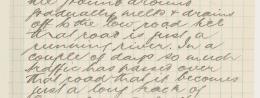 the ground
gradually melts & drains
off to the low road till
that road is just a
running river. In a
couple of days so much
traffic has passed over
that road that it becomes
just a long track of